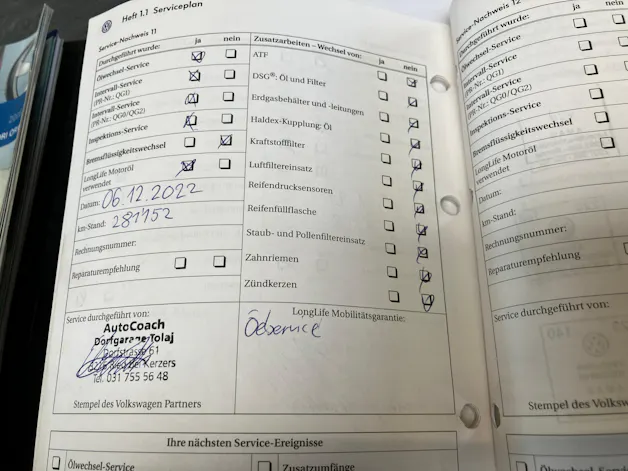 Heft 1.1 Serviceplan
Service-Nachweis 11
Durchgeführt wurde: ja nein
Ölwechsel-Service
Intervall-Service
(PR-Nr.: QG1)
Intervall-Service
(PR-Nr.: QG0/QG2)
Inspektions-Service
Bremsflüssigkeitswechsel
LongLife Motoröl
verwendet
Datum: 06.12.2022
km-Stand: 281152
Rechnungsnummer:
Reparaturempfehlung
Zusatzarbeiten – Wechsel von: ja nein
ATF
DSG®: Öl und Filter
Erdgasbehälter und -leitungen
Haldex-Kupplung: Öl
Kraftstofffilter
Luftfiltereinsatz
Reifendrucksensoren
Reifenfüllflasche
Staub- und Pollenfiltereinsatz
Zahnriemen
Zündkerzen
Service durchgeführt von:
AutoCoach
Dorfgarage Tolaj
Dorfstrasse 61
Kerzers
Tel. 031 755 56 48
Stempel des Volkswagen Partners
LongLife Mobilitätsgarantie:
Ihre nächsten Service-Ereignisse
Ölwechsel-Service
Zusatzumfänge
Service-Nachweis 12
Durchgeführt wurde:
Ölwechsel-Service
Intervall-Service
(PR-Nr.: QG1)
Intervall-Service
(PR-Nr.: QG0/QG2)
Inspektions-Service
Bremsflüssigkeitswechsel
LongLife Motoröl
verwendet
Datum:
km-Stand:
Rechnungsnummer:
Reparaturempfehlung
Service durchgeführt von:
Stempel des Volkswa